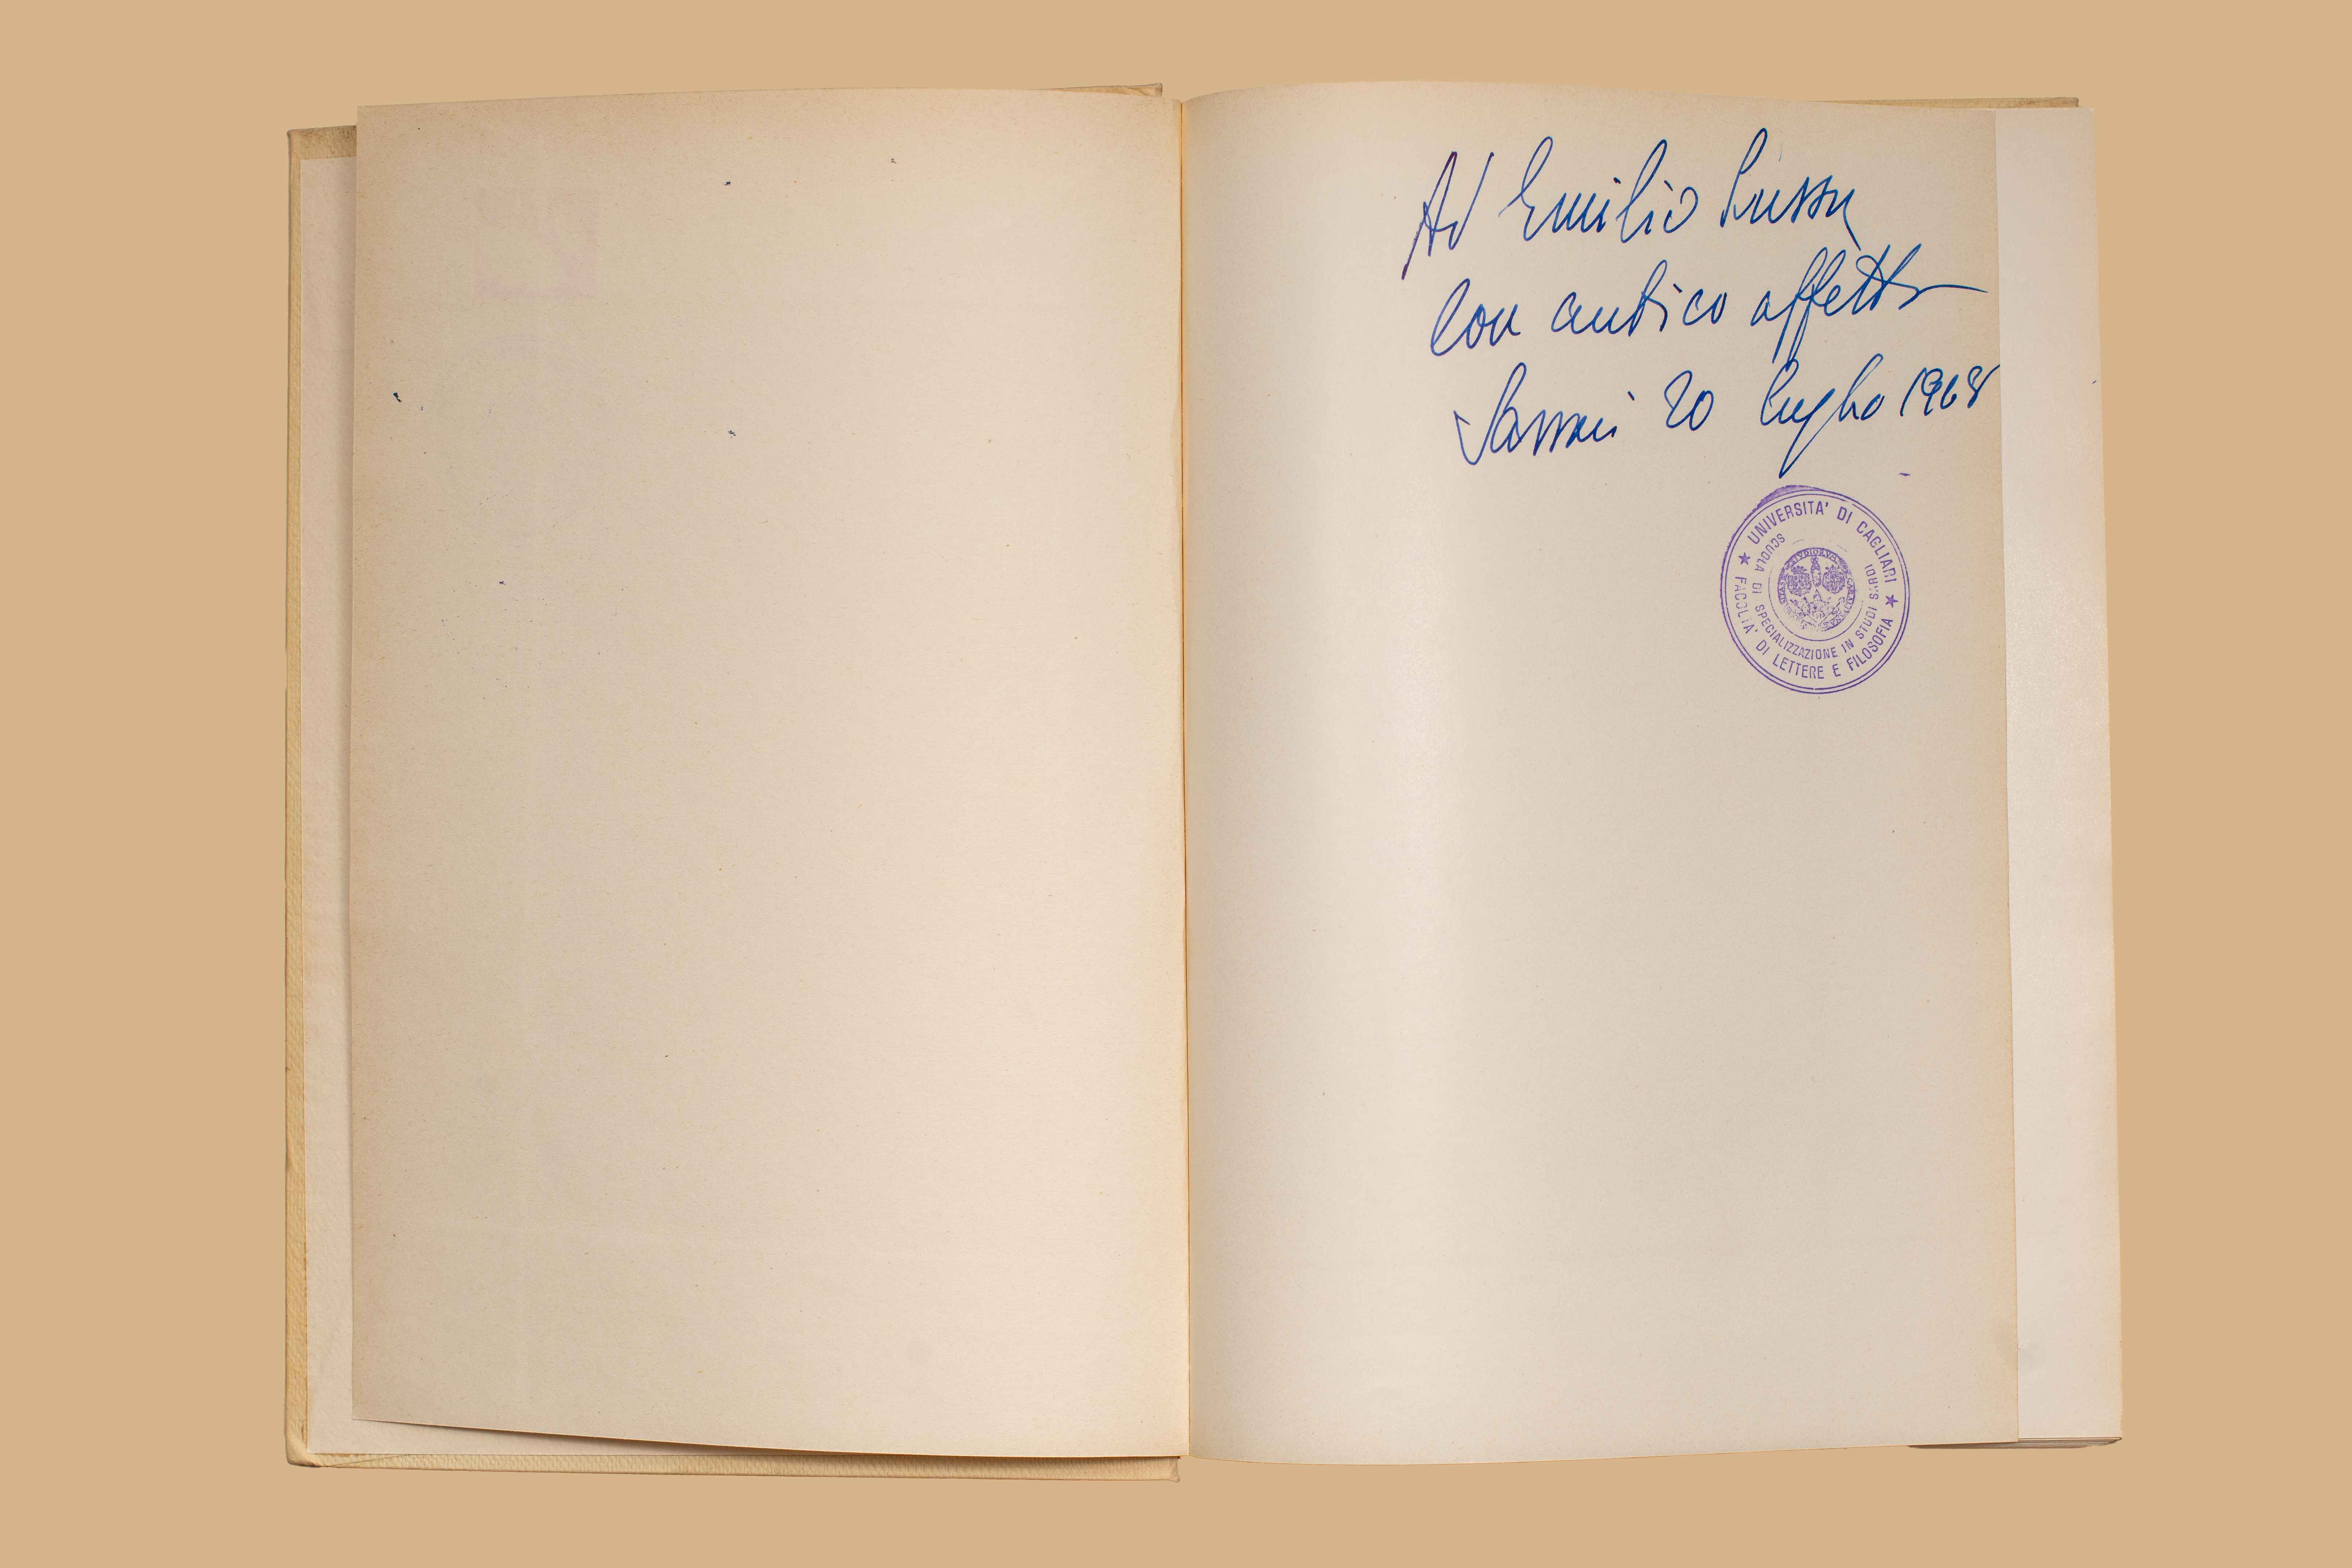 Ad Emilio Lussu
con antico affetto
Sassari 20 luglio 1968
UNIVERSITA' DI CAGLIARI
FACOLTA' DI LETTERE E FILOSOFIA
SCUOLA DI SPECIALIZZAZIONE IN STUDI SARDI